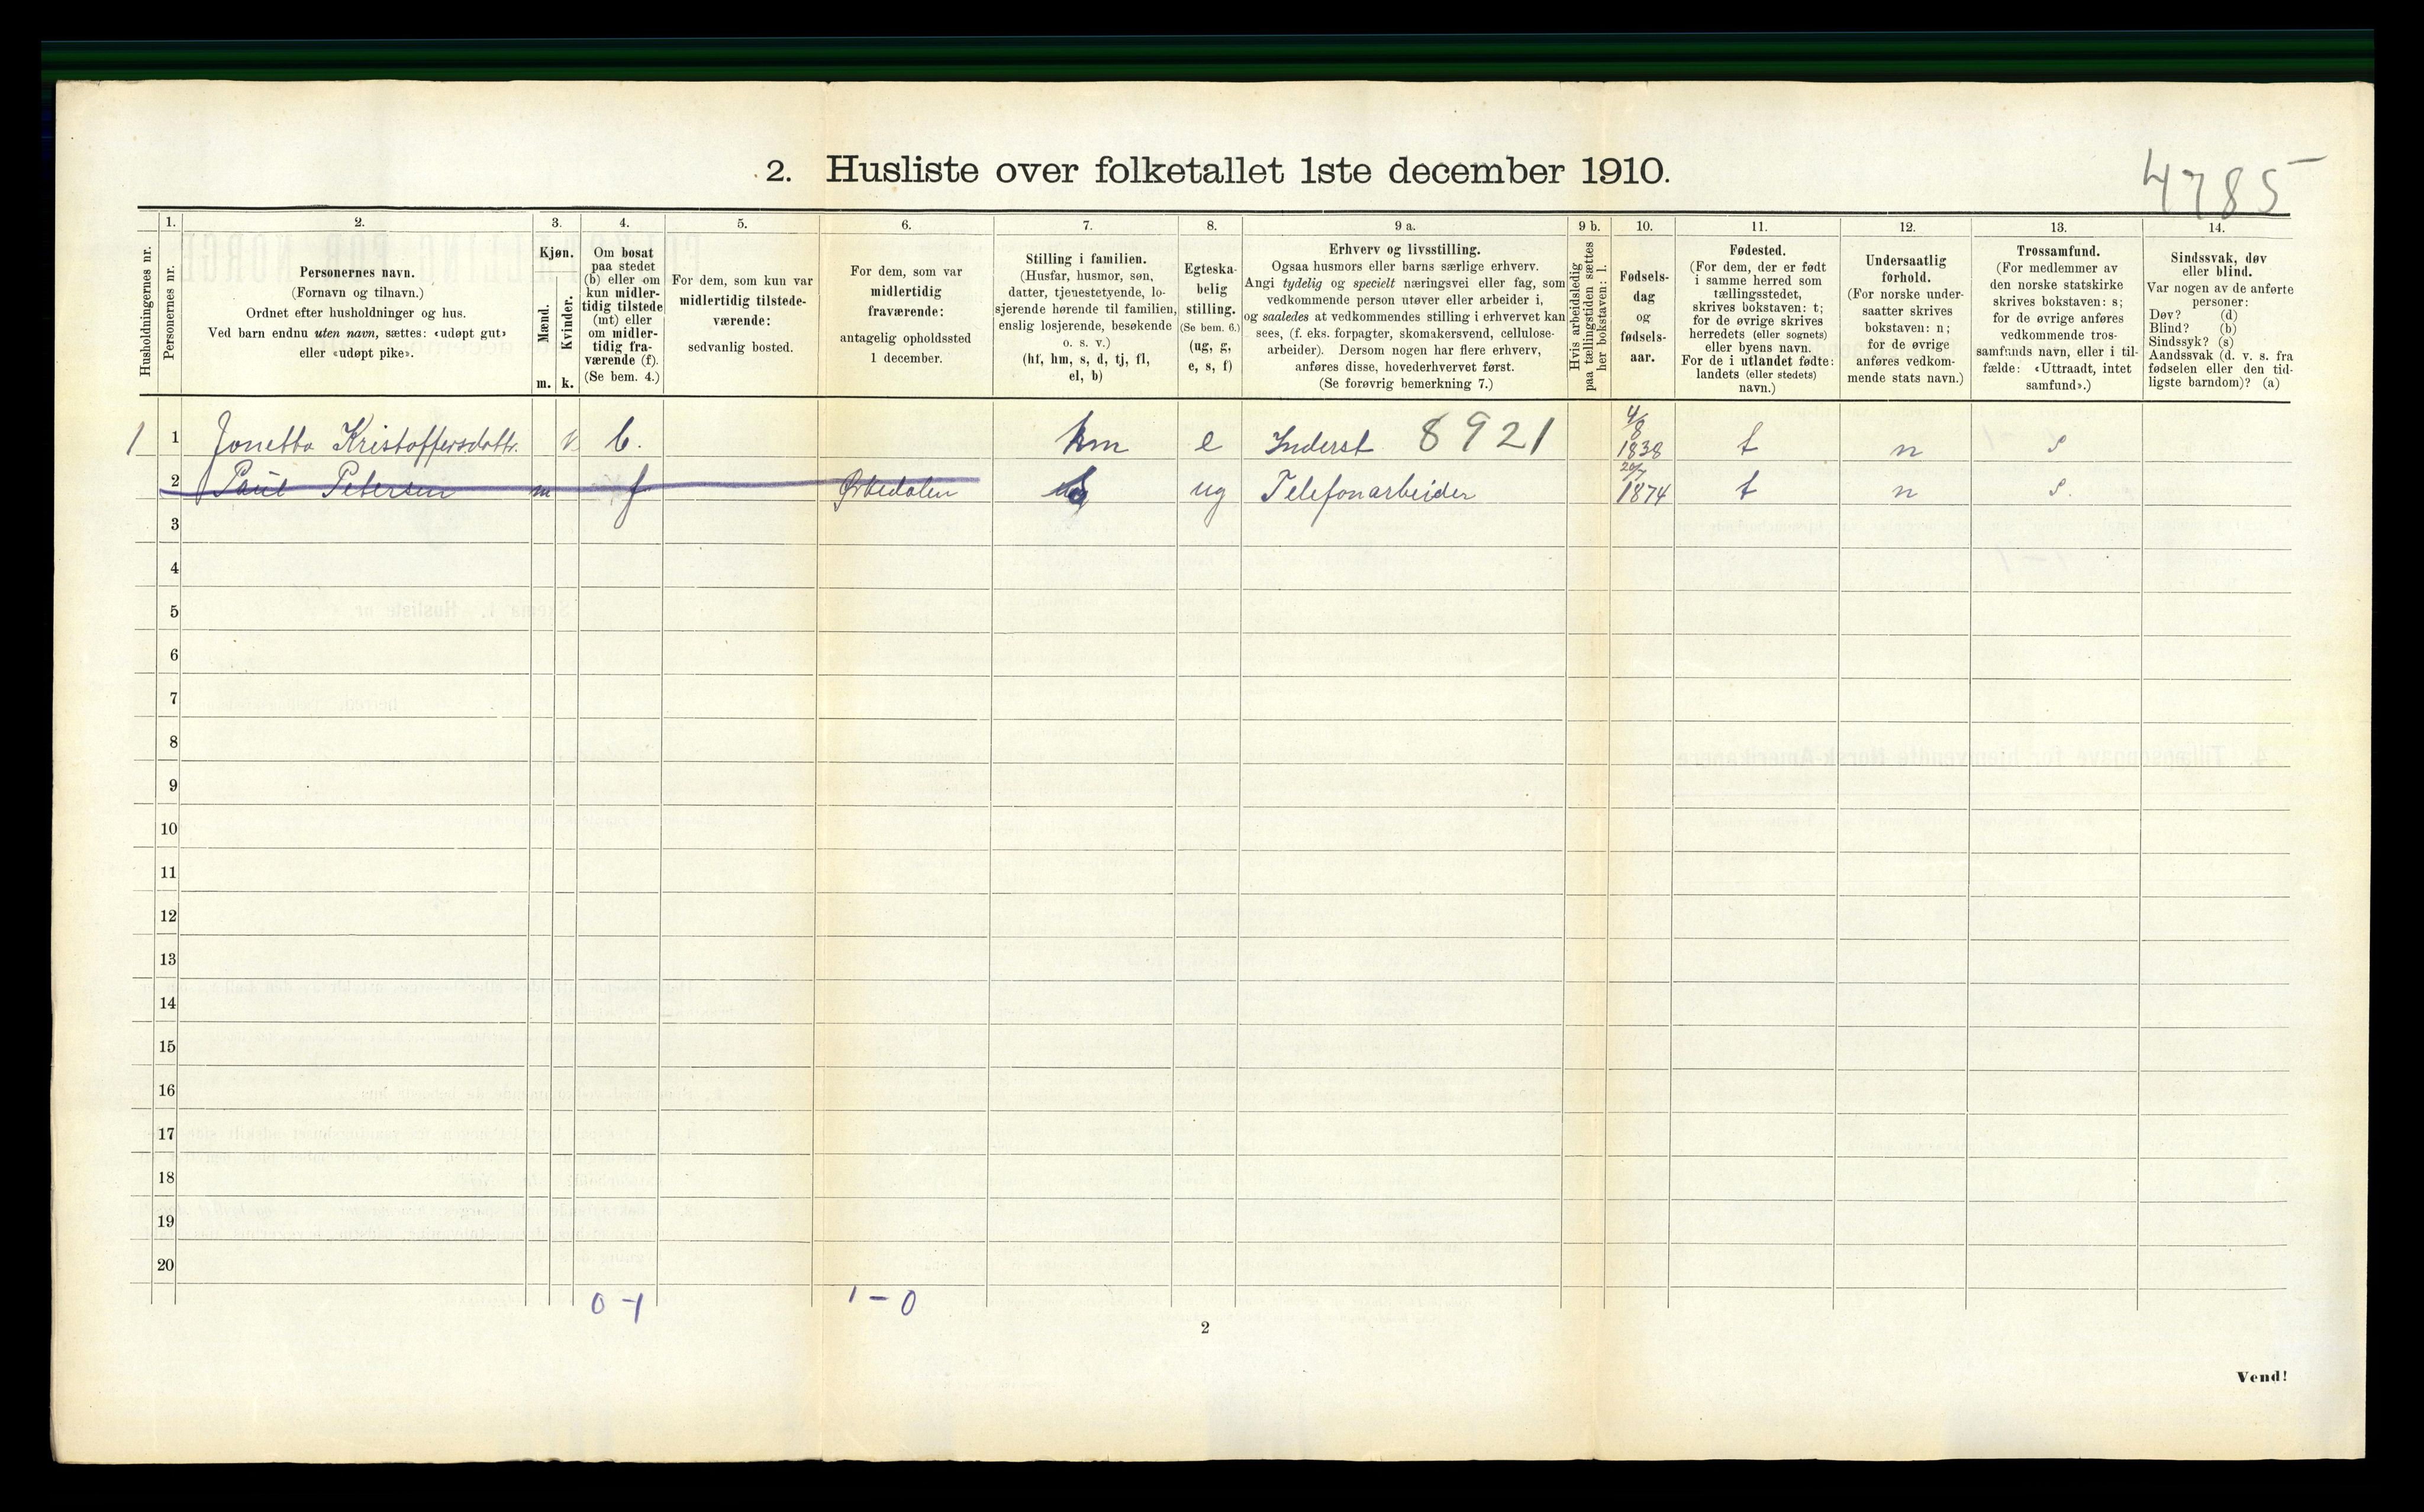 2. Husliste over folketallet 1ste december 1910.
4785
Husholdningernes nr.
1.
Personernes nr.
2.
Personernes navn.
(Fornavn og tilnavn.)
Ordnet efter husholdninger og hus.
Ved barn endnu uten navn, sættes: «udøpt gut»
eller «udøpt pike».
3.
Kjøn.
Mænd.
Kvinder.
m. k.
4.
Om bosat
paa stedet
(b) eller om
kun midler-
tidig tilstede
(mt) eller
om midler-
tidig fra-
værende (f).
(Se bem. 4.)
5.
For dem, som kun var
midlertidig tilstede-
værende:
sedvanlig bosted.
6.
For dem, som var
midlertidig
fraværende:
antagelig opholdssted
1 december.
7.
Stilling i familien.
(Husfar, husmor, søn,
datter, tjenestetyende, lo-
sjerende hørende til familien,
enslig losjerende, besøkende
o. s. v.)
(hf, hm, s, d, tj, fl,
el, b)
8.
Egteska-
belig
stilling.
(Se bem. 6.)
(ug, g,
e, s, f)
9 a.
Erhverv og livsstilling.
Ogsaa husmors eller barns særlige erhverv.
Angi tydelig og specielt næringsvei eller fag, som
vedkommende person utøver eller arbeider i,
og saaledes at vedkommendes stilling i erhvervet kan
sees, (f. eks. forpagter, skomakersvend, cellulose-
arbeider). Dersom nogen har flere erhverv,
anføres disse, hovederhvervet først.
(Se forøvrig bemerkning 7.)
9 b.
Hvis arbeidsledig
paa tællingstiden sættes
her bokstaven: l.
10.
Fødsels-
dag
og
fødsels-
aar.
11.
Fødested.
(For dem, der er født
i samme herred som
tællingsstedet,
skrives bokstaven: t;
for de øvrige skrives
herredets (eller sognets)
eller byens navn.
For de i utlandet fødte:
landets (eller stedets)
navn.)
12.
Undersaatlig
forhold.
(For norske under-
saatter skrives
bokstaven: n;
for de øvrige
anføres vedkom-
mende stats navn.)
13.
Trossamfund.
(For medlemmer av
den norske statskirke
skrives bokstaven: s;
for de øvrige anføres
vedkommende tros-
samfunds navn, eller i til-
fælde: «Uttraadt, intet
samfund».)
14.
Sindssvak, døv
eller blind.
Var nogen av de anførte
personer:
Døv? (d)
Blind? (b)
Sindssyk? (s)
Aandssvak (d. v. s. fra
fødselen eller den tid-
ligste barndom)? (a)
1 1 Jonetta Kristoffersdattr. b. hm e Inderst 8921 4/8 1838 t n s
2 Paul Petersen m f Ørkedalen ug Telefonarbeider 1874 t n s.
3
4
5
6
7
8
9
10
11
12
13
14
15
16
17
18
19
20
0-1 1-0
2
Vend!